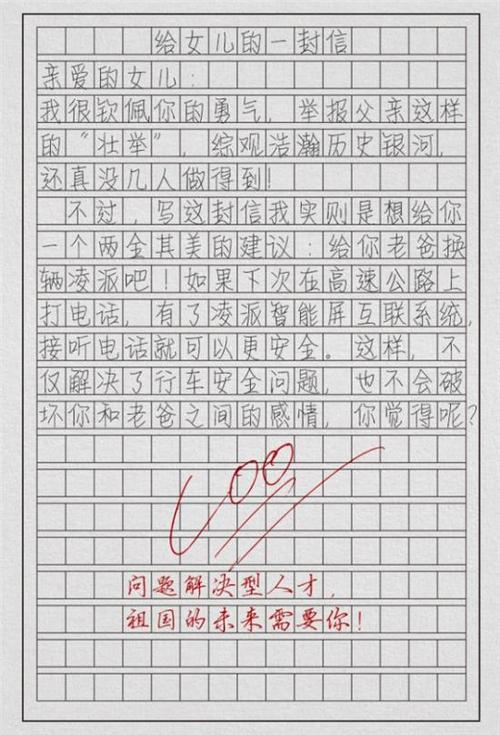 给女儿的一封信
亲爱的女儿：
我很钦佩你的勇气，举报父亲这样
的“壮举”，综观浩瀚历史银河，
还真没几人做得到！
不过，写这封信我实则是想给你
一个两全其美的建议：给你老爸换
辆凌派吧！如果下次在高速公路上
打电话，有了凌派智能屏互联系统，
接听电话就可以更安全。这样，不
仅解决了行车安全问题，也不会破
坏你和老爸之间的感情，你觉得呢？
100
问题解决型人才，
祖国的未来需要你！